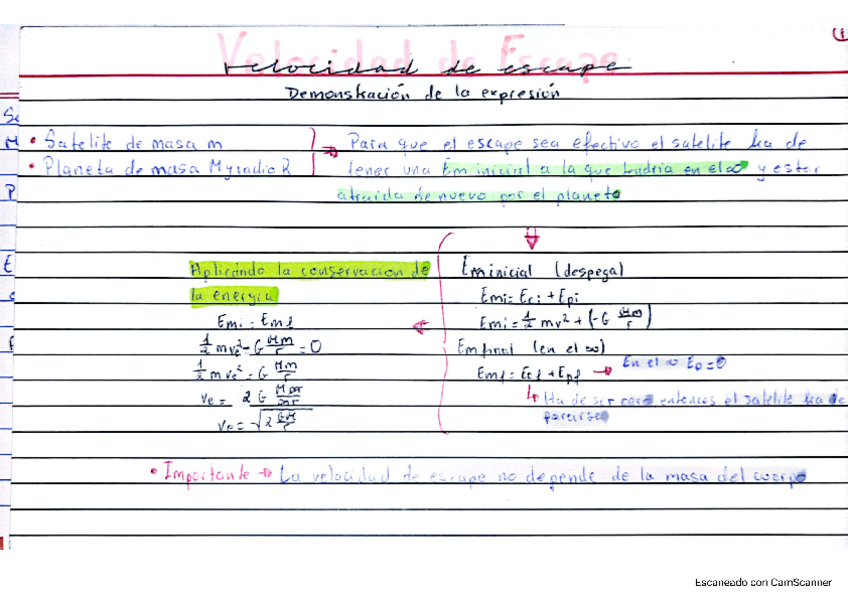 1
Velocidad de Escape
velocidad de escape
Demonstración de la expresión
• Satelite de masa m
• Planeta de masa M y radio R
→ Para que el escape sea efectivo el satelite ha de
tener una Em inicial a la que tendria en el ∞ y ester
atraida de nuevo por el planeta
Aplicando la conservación de
la energía
Emi = Emf
½ mve² - G Mm/r = 0
½ mve² = G Mm/r
ve = √2 GM/r
Em inicial (despega)
Emi = Eci + Epi
Emi = ½ mv² + (-G Mm/r)
Em final (en el ∞)
Emf = Ecf + Epf → En el ∞ Ep = 0
↳ Ha de ser cero entonces el satelite ha de
pararse
• Importante → La velocidad de escape no depende de la masa del cuerpo
Escaneado con CamScanner